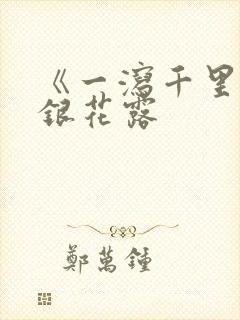 《一瀉千里
銀花露
鄭萬鍾